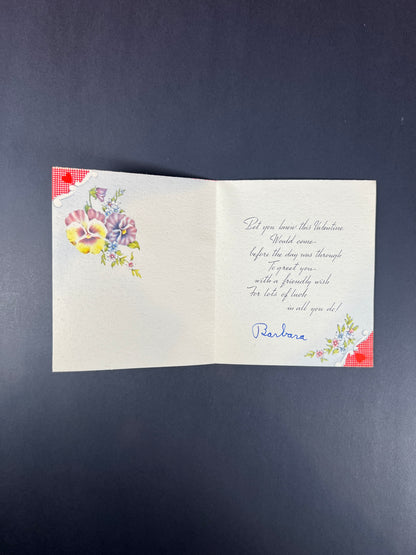 Bet you knew this Valentine
Would come
before the day was through
To greet you
with a friendly wish
For lots of luck
in all you do!
Barbara